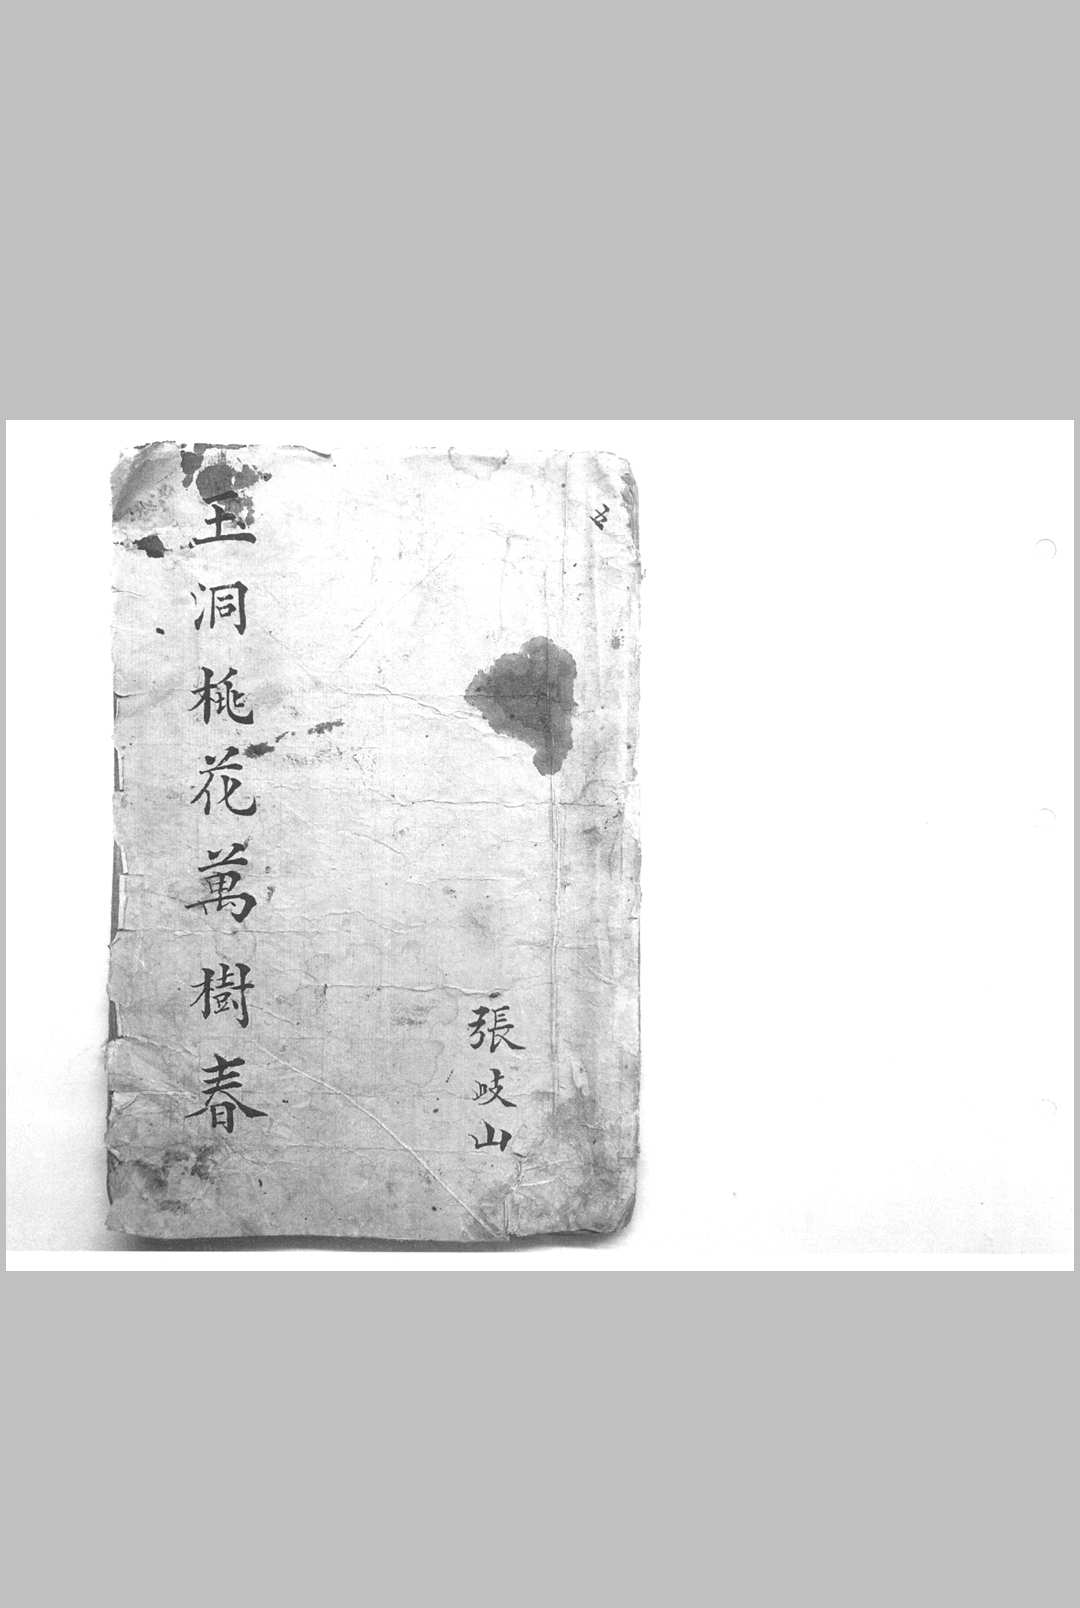 玉洞桃花萬樹春
張岐山